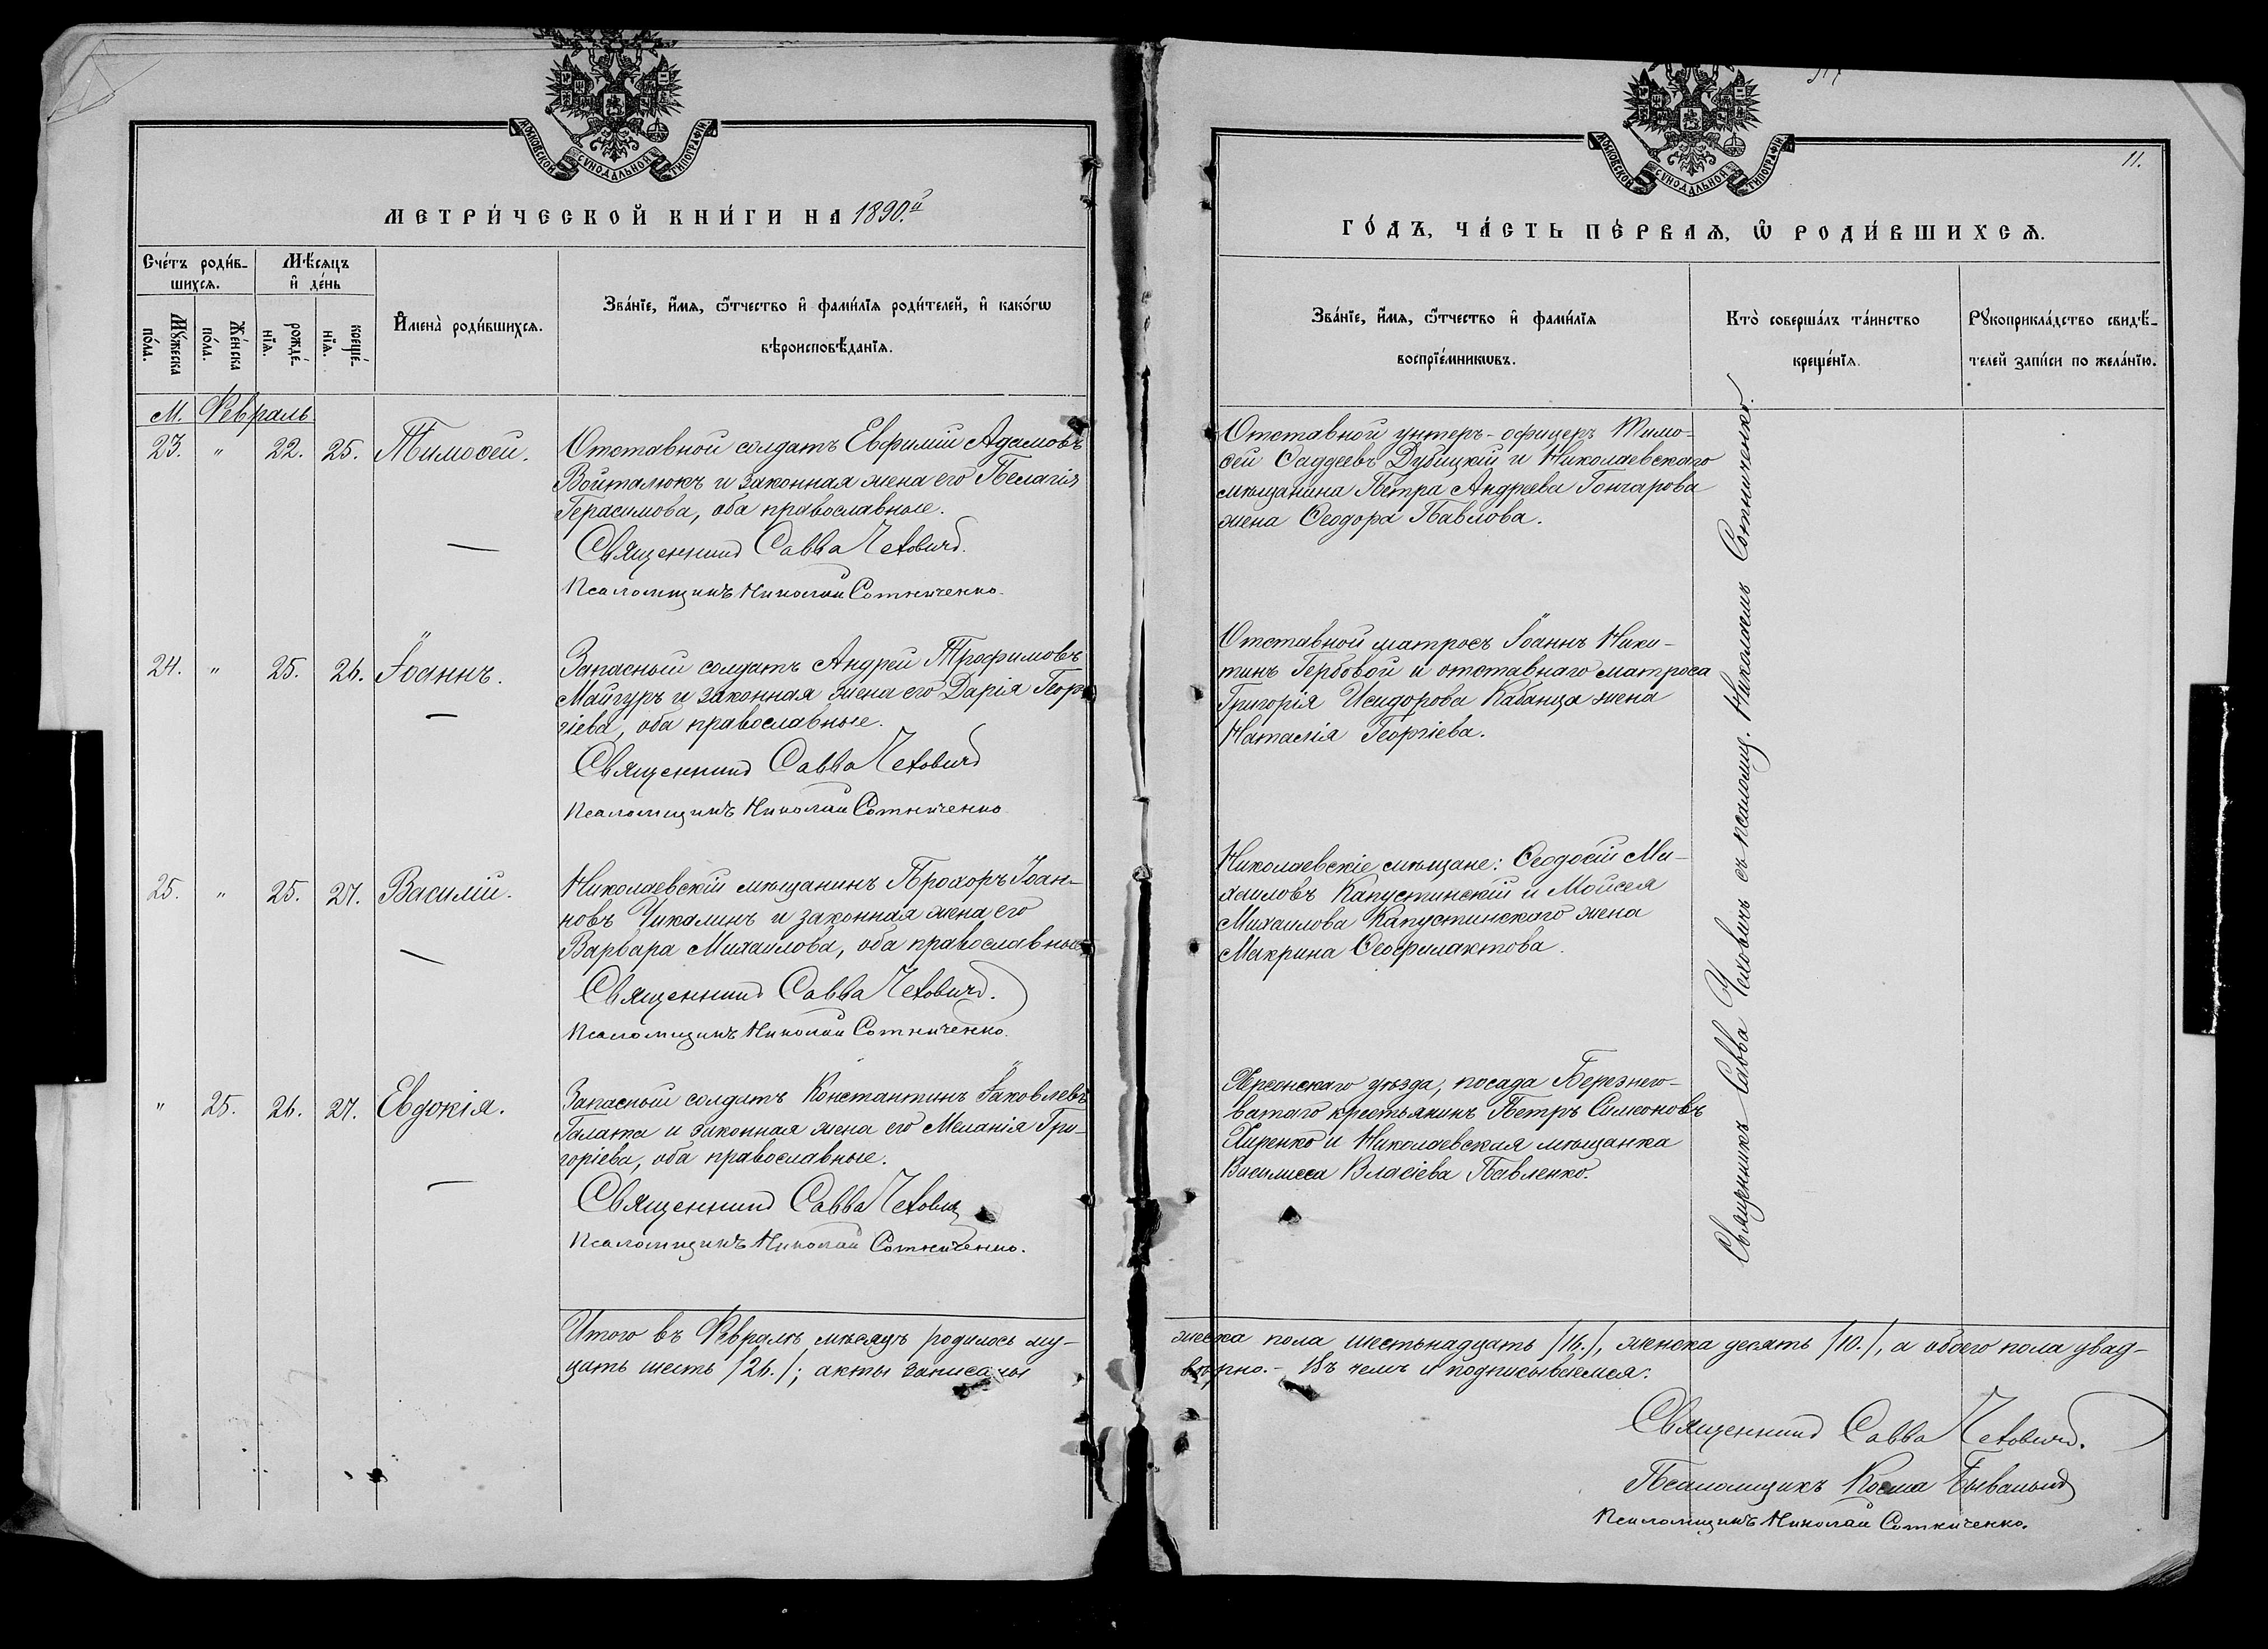 МОСКОВСКОЙ СѴНОДАЛЬНОЙ ТИПОГРАФІИ
МЕТРИ́ЧЕСКОЙ КНИ́ГИ НА 1890.й
Сче́тъ роди́в-
шихсѧ.
Мѣ́сѧцъ
и҆ де́нь
Мꙋ́жеска
по́ла.
Же́нска
по́ла.
рожде́-
нїѧ.
креще́-
нїѧ.
И҆мена̀ роди́вшихсѧ.
Зва́нїе, и҆́мѧ, ѻ҆́тчество и҆ фами́лїѧ роди́телей, и҆ како́гѡ
вѣроисповѣ́данїѧ.
М. Февраль
23. " 22. 25. Тимоѳей.
Отставной солдатъ Евфимій Адамовъ
Войталюкъ и законная жена его Пелагія
Герасимова, оба православные.
Священникъ Савва Чеховичъ.
Псаломщикъ Николай Сотниченко.
24. " 25. 26. Іоаннъ.
Запасный солдатъ Андрей Трофимовъ
Майгуръ и законная жена его Дарія Геор-
гіева, оба православные.
Священникъ Савва Чеховичъ
Псаломщикъ Николай Сотниченко
25. " 25. 27. Василій.
Николаевскій мѣщанинъ Прохоръ Іоан-
новъ Чикалинъ и законная жена его
Варвара Михаилова, оба православные
Священникъ Савва Чеховичъ.
Псаломщикъ Николай Сотниченко.
" 25. 26. 27. Евдокія.
Запасный солдатъ Константинъ Іаковлевъ
Галата и законная жена его Меланія Гри-
горіева, оба православные.
Священникъ Савва Чехович
Псаломщикъ Николай Сотниченко.
Итого въ Февралѣ мѣсяцѣ родилось му-
цать шесть /26./; акты записаны
МОСКОВСКОЙ СѴНОДАЛЬНОЙ ТИПОГРАФІИ
11.
ГО́ДЪ, ЧА́СТЬ ПЕ́РВАѦ, Ѡ҆ РОДИ́ВШИХСѦ.
Зва́нїе, и҆́мѧ, ѻ҆́тчество и҆ фами́лїѧ
воспрїе́мникѡвъ.
Кто̀ соверша́лъ та́инство
креще́нїѧ.
Рꙋкоприкла́дство свидѣ́-
телей за́писи по жела́нїю.
Отставной унтеръ-офицеръ Тимо-
ѳей Ѳаддеевъ Дубицкій и Николаевскаго
мѣщанина Петра Андреева Гончарова
жена Ѳеодора Павлова.
Отставной матросъ Іоаннъ Ники-
тинъ Гербовой и отставнаго матроса
Григорія Исидорова Кабанца жена
Наталія Георгіева.
Николаевскіе мѣщане: Ѳеодосій Ми-
хаиловъ Капустинскій и Моисея
Михаилова Капустинскаго жена
Макрина Ѳеофилактова.
Херсонскаго уѣзда, посада Березнего-
ватаго крестьянинъ Петръ Симеоновъ
Хиренко и Николаевская мѣщанка
Василисса Власіева Павленко.
Священникъ Савва Чеховичъ съ псаломщ. Николаемъ Сотниченко.
жеска пола шестьнадцать /16./, женска десять /10./, а обоего пола двад-
вѣрно.- Въ чемъ и подписываемся:
Священникъ Савва Чеховичъ.
Псаломщикъ Косма Бывалый
Псаломщикъ Николай Сотниченко.